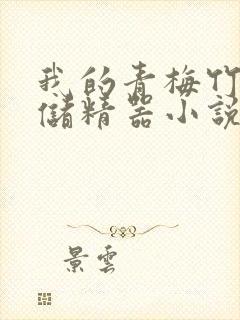 我的青梅竹
儲精器小說
景雲